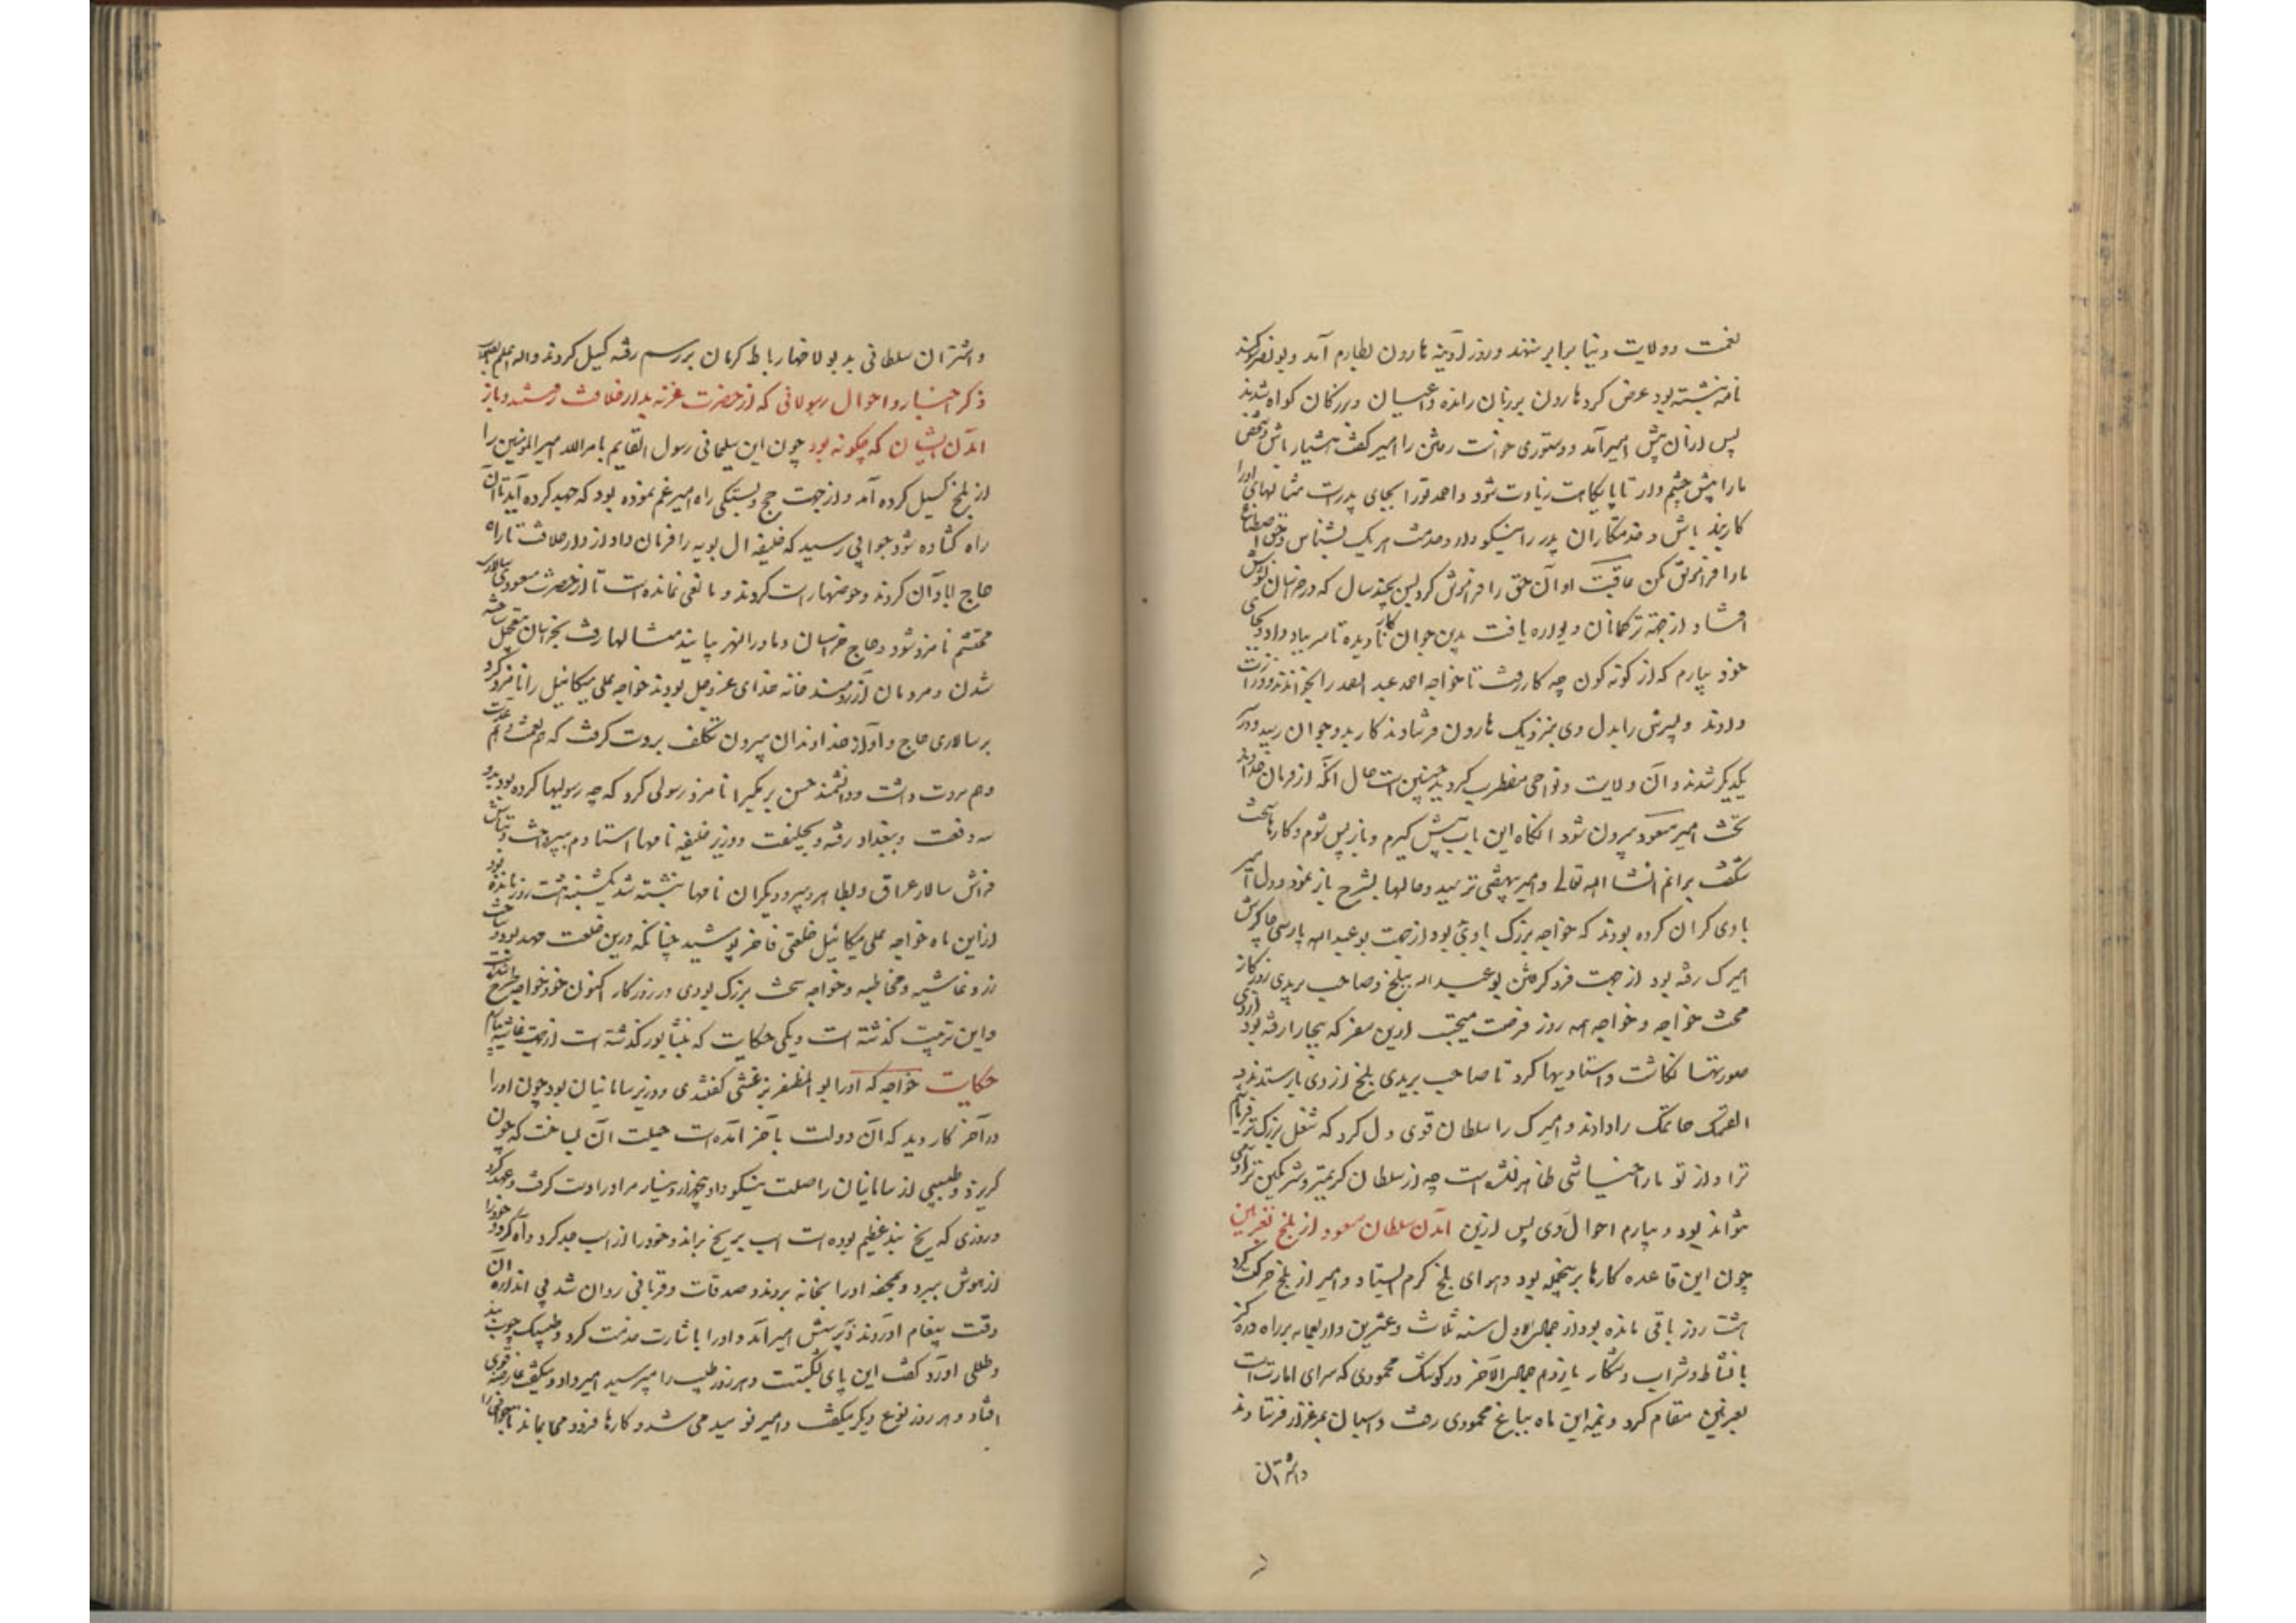 نعمت و ولایت دنیا برابر ننهند و روز آدینه هارون بطارم آمد و بونصر سوگند
نامه نبشته بود عرض کرد هارون بر زبان رانده و اعیان و بزرگان گواه شدند
پس ازان پیش امیر آمد و دستوری خواست رفتن را امیر گفت هشیار باش و شخص
ما را پیش چشم دار تا پایگاهت زیادت شود و احمد تو را بجای پدرست مثالهای او را
کاربند باش و خدمتکاران پدر را نیکو دار و خدمت هر یک بشناس و حق اصطناع
ما را فراموش مکن عاقبت او آن حق را فراموش کرد پس بچند سال که در خراسان تشویش
افتاد از جهة ترکمانان و دیو راه یافت بدین جوان کار نادیده تا سر بباد داد و بجای
خود بیارم که از گونه گون چه کار رفت تا خواجه احمد عبد الصمد را بخواندند و وزارت
دادند و پسرش را بدل وی بنزدیک هارون فرستادند کار بدو جوان رسید و در
یکدیگر شدند و آن ولایت و نواحی مضطرب گردید چنین است حال آنکه از فرمان خداوند
تخت امیر مسعود بیرون شود آنگاه این باب پیش گیرم و باز پس شوم و کارها سخت
شگفت برانم انشا الله تعالی و امیر بیهقی نرسید و حالها بشرح باز نمود و دل امیر
با وی گران کرده بودند که خواجه بزرگ با وی بود از جهت بوعبد الله پارسی چاکرش
امیرک رفته بود از جهت فرو گرفتن بوعبد الله ببلخ و صاحب بریدی روزگار
محنت خواجه و خواجه همه روز فرصت میجست ازین سفر که ببخارا رفته بود
صورتها نگاشت و استادیها کرد تا صاحب بریدی بلخ از وی بازستدند و
القمک حاتمک را دادند و امیرک را سلطان قوی دل کرد که شغل بزرگتر فرمایم
ترا و از تو ما را خیانتی ظاهر نگشته است چه از سلطان کریمتر و شرمگین تر آدمی
نتواند بود و بیارم احوال وی پس ازین آمدن سلطان مسعود از بلخ بغزنین
چون این قاعده کارها بر نیجمله بود و هوای بلخ گرم ایستاد و امیر از بلخ حرکت کرد
هشت روز باقی مانده بود از جمادی الاول سنه ثلاث و عشرین و اربعمایه بر راه دره گز
با نشاط و شراب و شکار یازدهم جمادی الآخر در کوشک محمودی که سرای امارت است
بغزنین مقام کرد و نیمه این ماه بباغ محمودی رفت و اسبان بمرغزار فرستادند
و اشتران
و اشتران سلطانی بدیولاخها رباط کرمان بر رسم رفته گسیل کردند والله اعلم بالصواب
ذکر اخبار و احوال رسولانی که از حضرت غزنه بدار خلافت رفتند و باز
آمدن ایشان که چگونه بود چون این سلیمانی رسول القایم بامر الله امیر المؤمنین را
از بلخ گسیل کرده آمد و از جهت حج و بستگی راه امیر غم نموده بود که جهد کرده آید تا آن
راه گشاده شود جوابی رسید که خلیفه ال بویه را فرمان داد از دار خلافت تا راه
حاج ابادان کردند و حوضها راست کردند و مانعی نمانده است تا از حضرت مسعودی سالاری
محتشم نامزد شود و حاج خراسان و ماورالنهر بیایند مثالها رفت بخراسان بتعجیل ساخته
شدن و مردمان آرزومند خانه خدای عز وجل بودند خواجه علی میکائیل را نامزد کرد
بر سالاری حاج و او از خداوندان بیرون تکلف بروت گرفت که هم نعمت و عدت
و هم مروت داشت و دانشمند حسن برمکی را نامزد رسولی کرد که چه رسولیها کرده بود بدو
سه دفعت و ببغداد رفته و بخلیفت و وزیر خلیفه نامها استادم بپرداخت و بتاش
فراش سالار عراق و بطاهر دبیر و دیگران نامها نبشته شد یکشنبه هشت روز مانده بود
ازین ماه خواجه علی میکائیل خلعتی فاخر پوشید چنانکه درین خلعت مهد بود و ساخت
زر و غاشیه و مخاطبه و خواجه سخت بزرگ بودی در روزگار اکنون خود خواجه طرح شده است
و این ترتیب گذشته است و یکی حکایت که بنشابور گذشته است از جهت غاشیه بیارم
حکایت خواجه که او را بو المظفر بزغشی گفتندی و وزیر سامانیان بود چون او را
در آخر کار دید که آن دولت بآخر آمده است حیلت آن بساخت که چون
گریزد و طبیبی از سامانیان را صلت نیکو داد پنجهزار دینار مر او را دست گرفت و عهد کرد
و روزی که یخ بند عظیم بوده است اسب بر یخ براند و خود را از اسب جدا کرد و آه کرد و خود را
از هوش ببرد و بمحفه او را بخانه بردند و صدقات و قربانی روان شد بی اندازه آن
وقت پیغام آوردند و بپرسش امیر آمد و او را باشارت خدمت کرد و طبیبک چوب بند
و طلی آورد گفت این پای بشکست و هر روز طبیب را میپرسید امیر و او میگفت عارضه قوی
افتاد و هر روز نوع دیگر میگفت و امیر نومید می شد و کارها فرو می بماند تا جوانی را